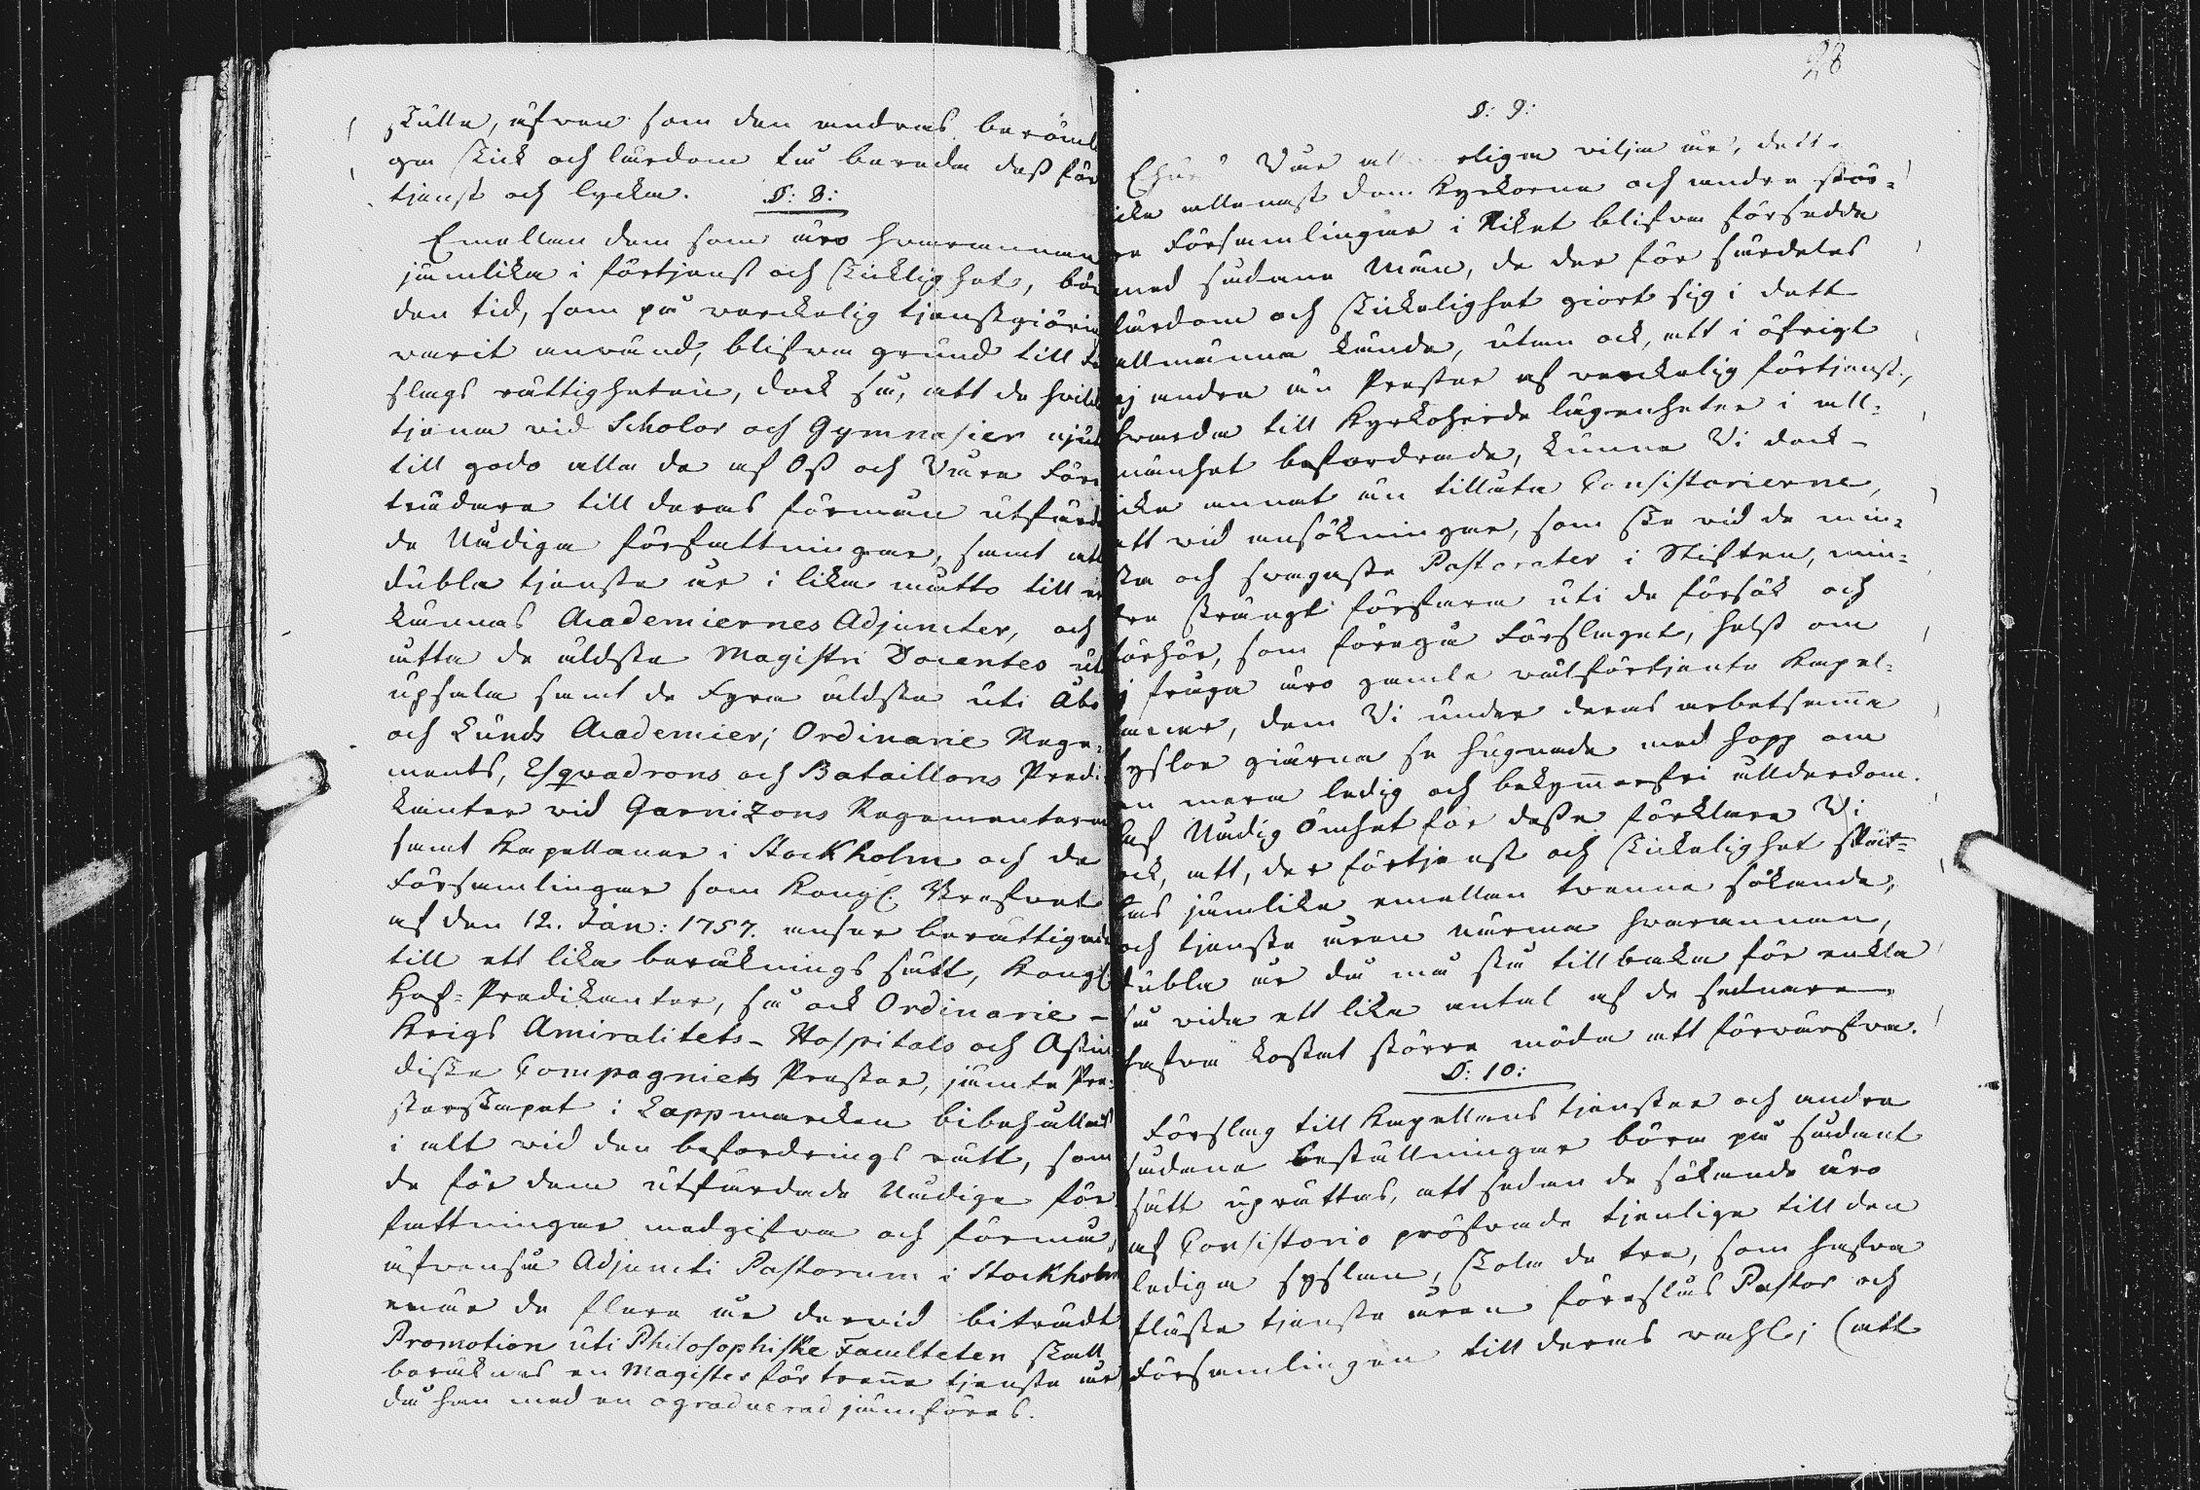 skulle, äfven som den andras berömli
ga skick och lärdom tå bereda dess för
tjenst och lycka.
§: 8:
Emellan dem som äro hvarannan
jämlika i förtjenst och skicklighet, bör
den tid, som på verckelig tjenstgiöring
varit använd, blifva grund till
slags rättigheten, dock så, att de hvilka
tjena vid Scholor och Gymnasier njuta
till godo alla de af Oss och Våre Före
trädare till deras förmån utfärda
de Nådiga författningar, samt att
dubla tjenste år i lika måtto till er
kännas Academiernes Adjuncter, och
åtta de äldsta Magistri Docentes uti
Upsala samt de Fyra äldsta uti Åbo
och Lunds Academier; Ordinarie Rege-
ments, Esqvadrons och Bataillons Predi-
kanter vid Garnizons Regementerne
samt Kapellaner i Stockholm och de
Församlingar som Kongl. Brefvet
af den 12. Jan: 1757. anser berättigade
till ett lika beräknings sätt, Kongl
Hof-Predikanter, så ock Ordinarie-
Krigs Amiralitets- Hospitals och Ostin
diske Compagniets Prester, jämte Pre-
sterskapet i Lappmarcken bibehållas
i allt vid den befordrings rätt, som
de för dem utfärdade Nådige för
fattningar medgifva och förmå,
äfvenså Adjuncti Pastorum i Stockholm
enär de flera år dervid biträdt
Promotion uti Philosophiske Faculteten skall
beräknas en Magister för trenne tjenste år,
då han med en ograduerad jämföres.
28
§: 9:
Ehuru Vår eliga vilja är, det
icke allenast dem Kyrkorna och andra stör-
re Församlingar i Riket blifva försedde
med sådane Män, de der för särdeles
lärdom och skickelighet giort sig i dett
allmänna kände, utan ock, att i öfrigt
ej andra än Prester af verckelig förtjenst,
hvarda till Kyrkoherde lägenheter i all-
mänhet befordrade, kunne Vi dock-
icke annat än tillåta Consistorierne,
att vid ansökningar, som ske vid de min-
sta och svagaste Pastorater i Stiften, min-
dre strängt förfara uti de försök och
förhör, som föregå Förslaget, helst om
j fråga äro gamla välförtjente Kapel-
laner, dem Vi under deras arbetsamma
syslor giärna se hugnade med hopp om
en mera ledig och bekymmersfri ållderdom.
Af Nådig Ömhet för desse förklare Vi
ock, att, der förtjenst och skickelighet skätt-
tas jämlika emellan tvenne sökande,
och tjenste åren närma hvarannan,
dubla år då må stå tillbaka för enkla
så vida ett lika antal af de sednare
hafva kostat större möda att förvärfva.
§: 10:
Förslag till Kapellans tjenster och andra
sådana beställningar böra på sådant
sätt uprättas, att sedan de sökande äro
af Consistorio pröfvade tjenlige till den
lediga syslan, skola de tre, som hafva
flästa tjenste åren föreslås Pastor och
Församlingen till deras vahl; (att